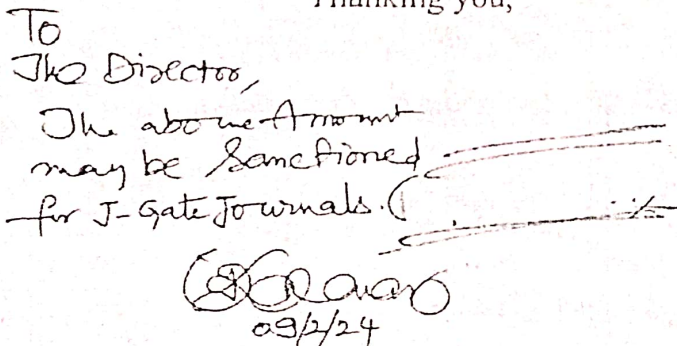 Thanking you,
To
The Director,
The above Amount
may be Sanctioned
for J-Gate Journals.
09/2/24